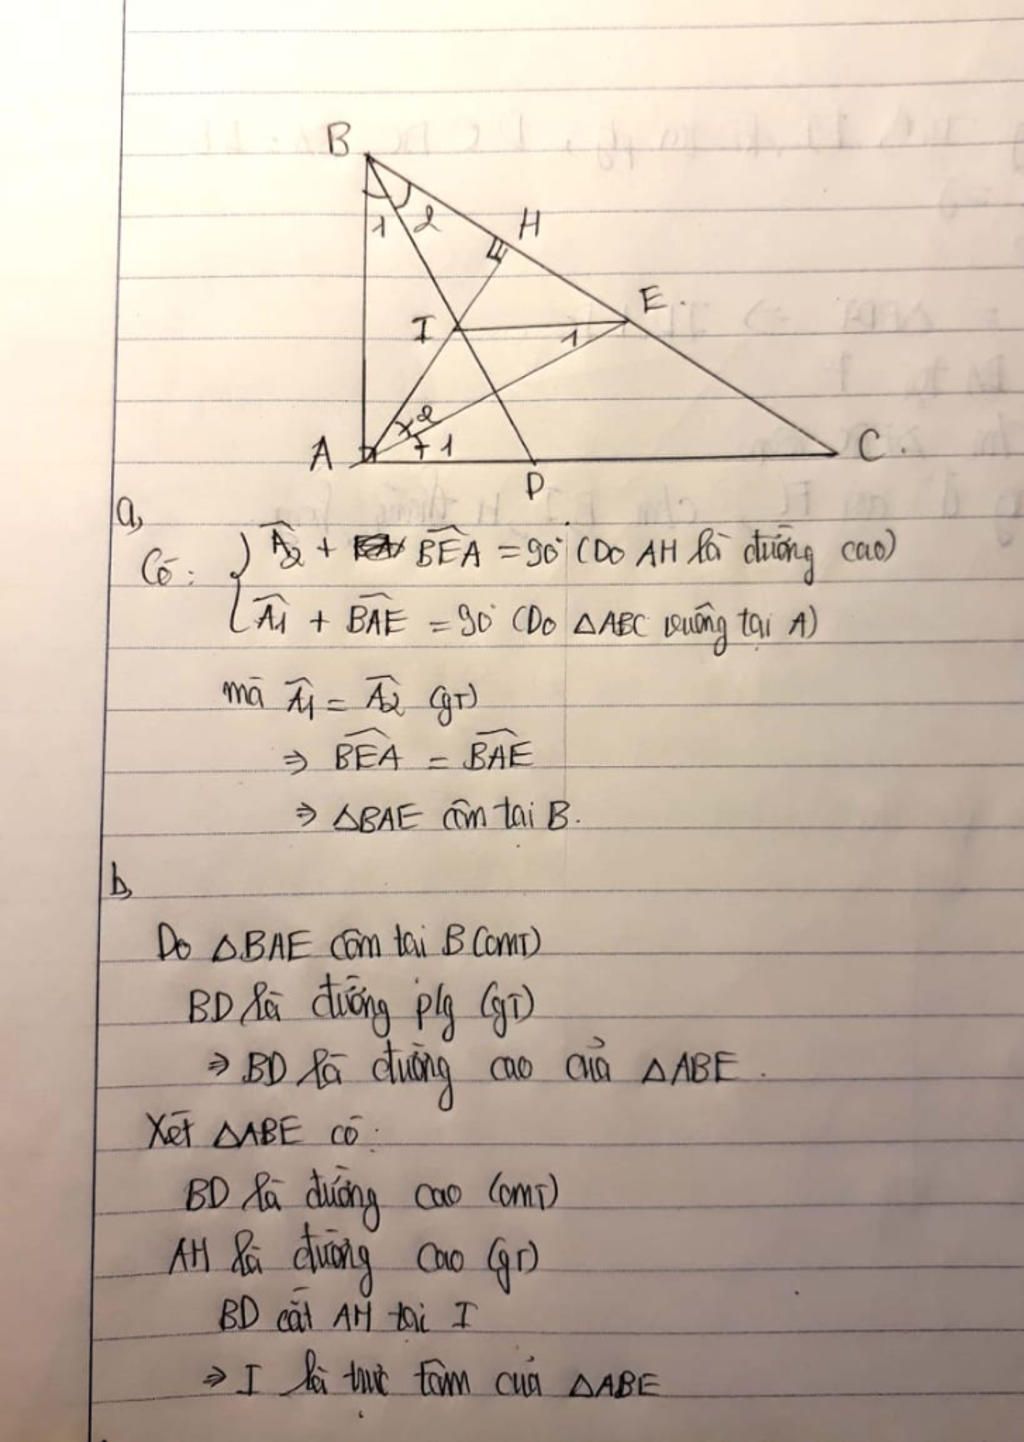 B
1 2
H
E.
I
1
2
A
1
C.
D
a,
Có: { Â2 + BÊA = 90° (Do AH là đường cao)
Â1 + BÂE = 90° (Do △ABC vuông tại A)
mà Â1 = Â2 (gT)
⇒ BÊA = BÂE
⇒ △BAE cân tại B.
b,
Do △BAE cân tại B (cmT)
BD là đường p/g (gT)
⇒ BD là đường cao của △ABE.
Xét △ABE có:
BD là đường cao (cmT)
AH là đường cao (gT)
BD cắt AH tại I
⇒ I là trực tâm của △ABE